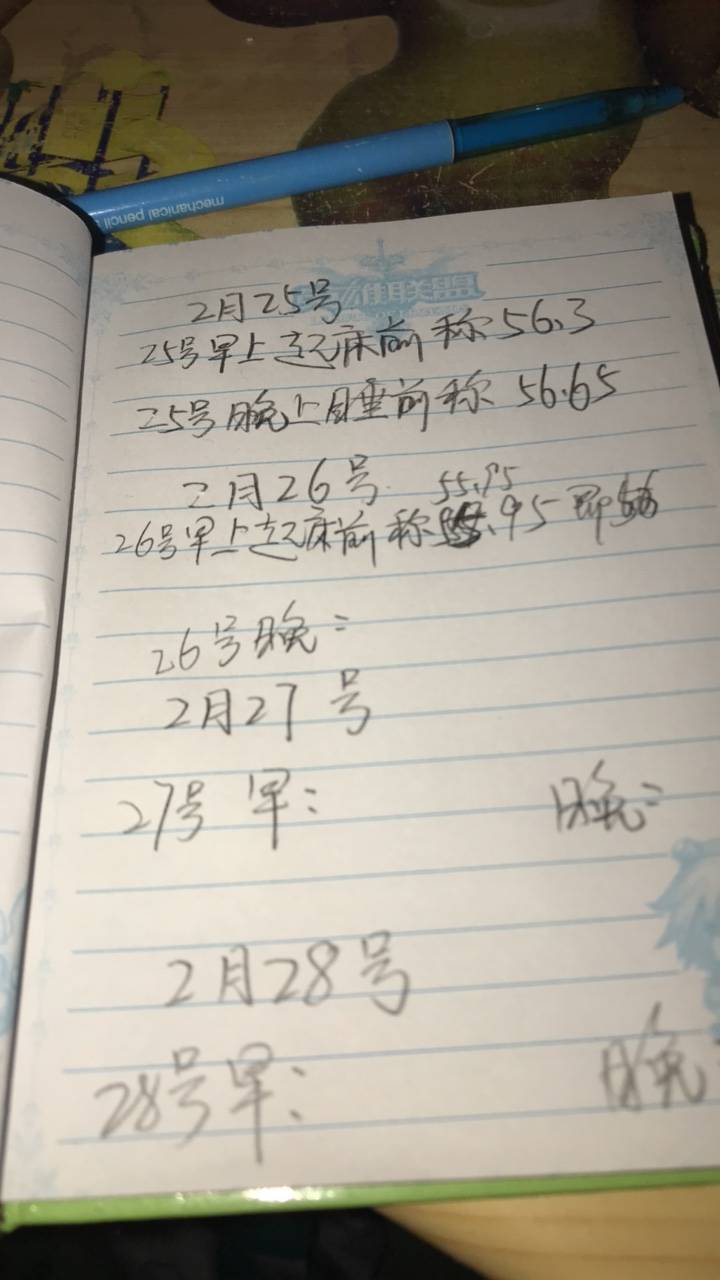 mechanical pencil
雄联盟
2月25号
25号早上起床前称56.3
25号晚上睡前称 56.65
二月26号
55.95
26号早上起床前称55.95 即56
26号晚:
2月27号
27号 早: 晚:
2月28号
28号早: 晚